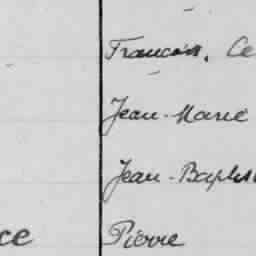 Francois. Ce
Jean-Marie
Jean-Baptis
ce Pierre